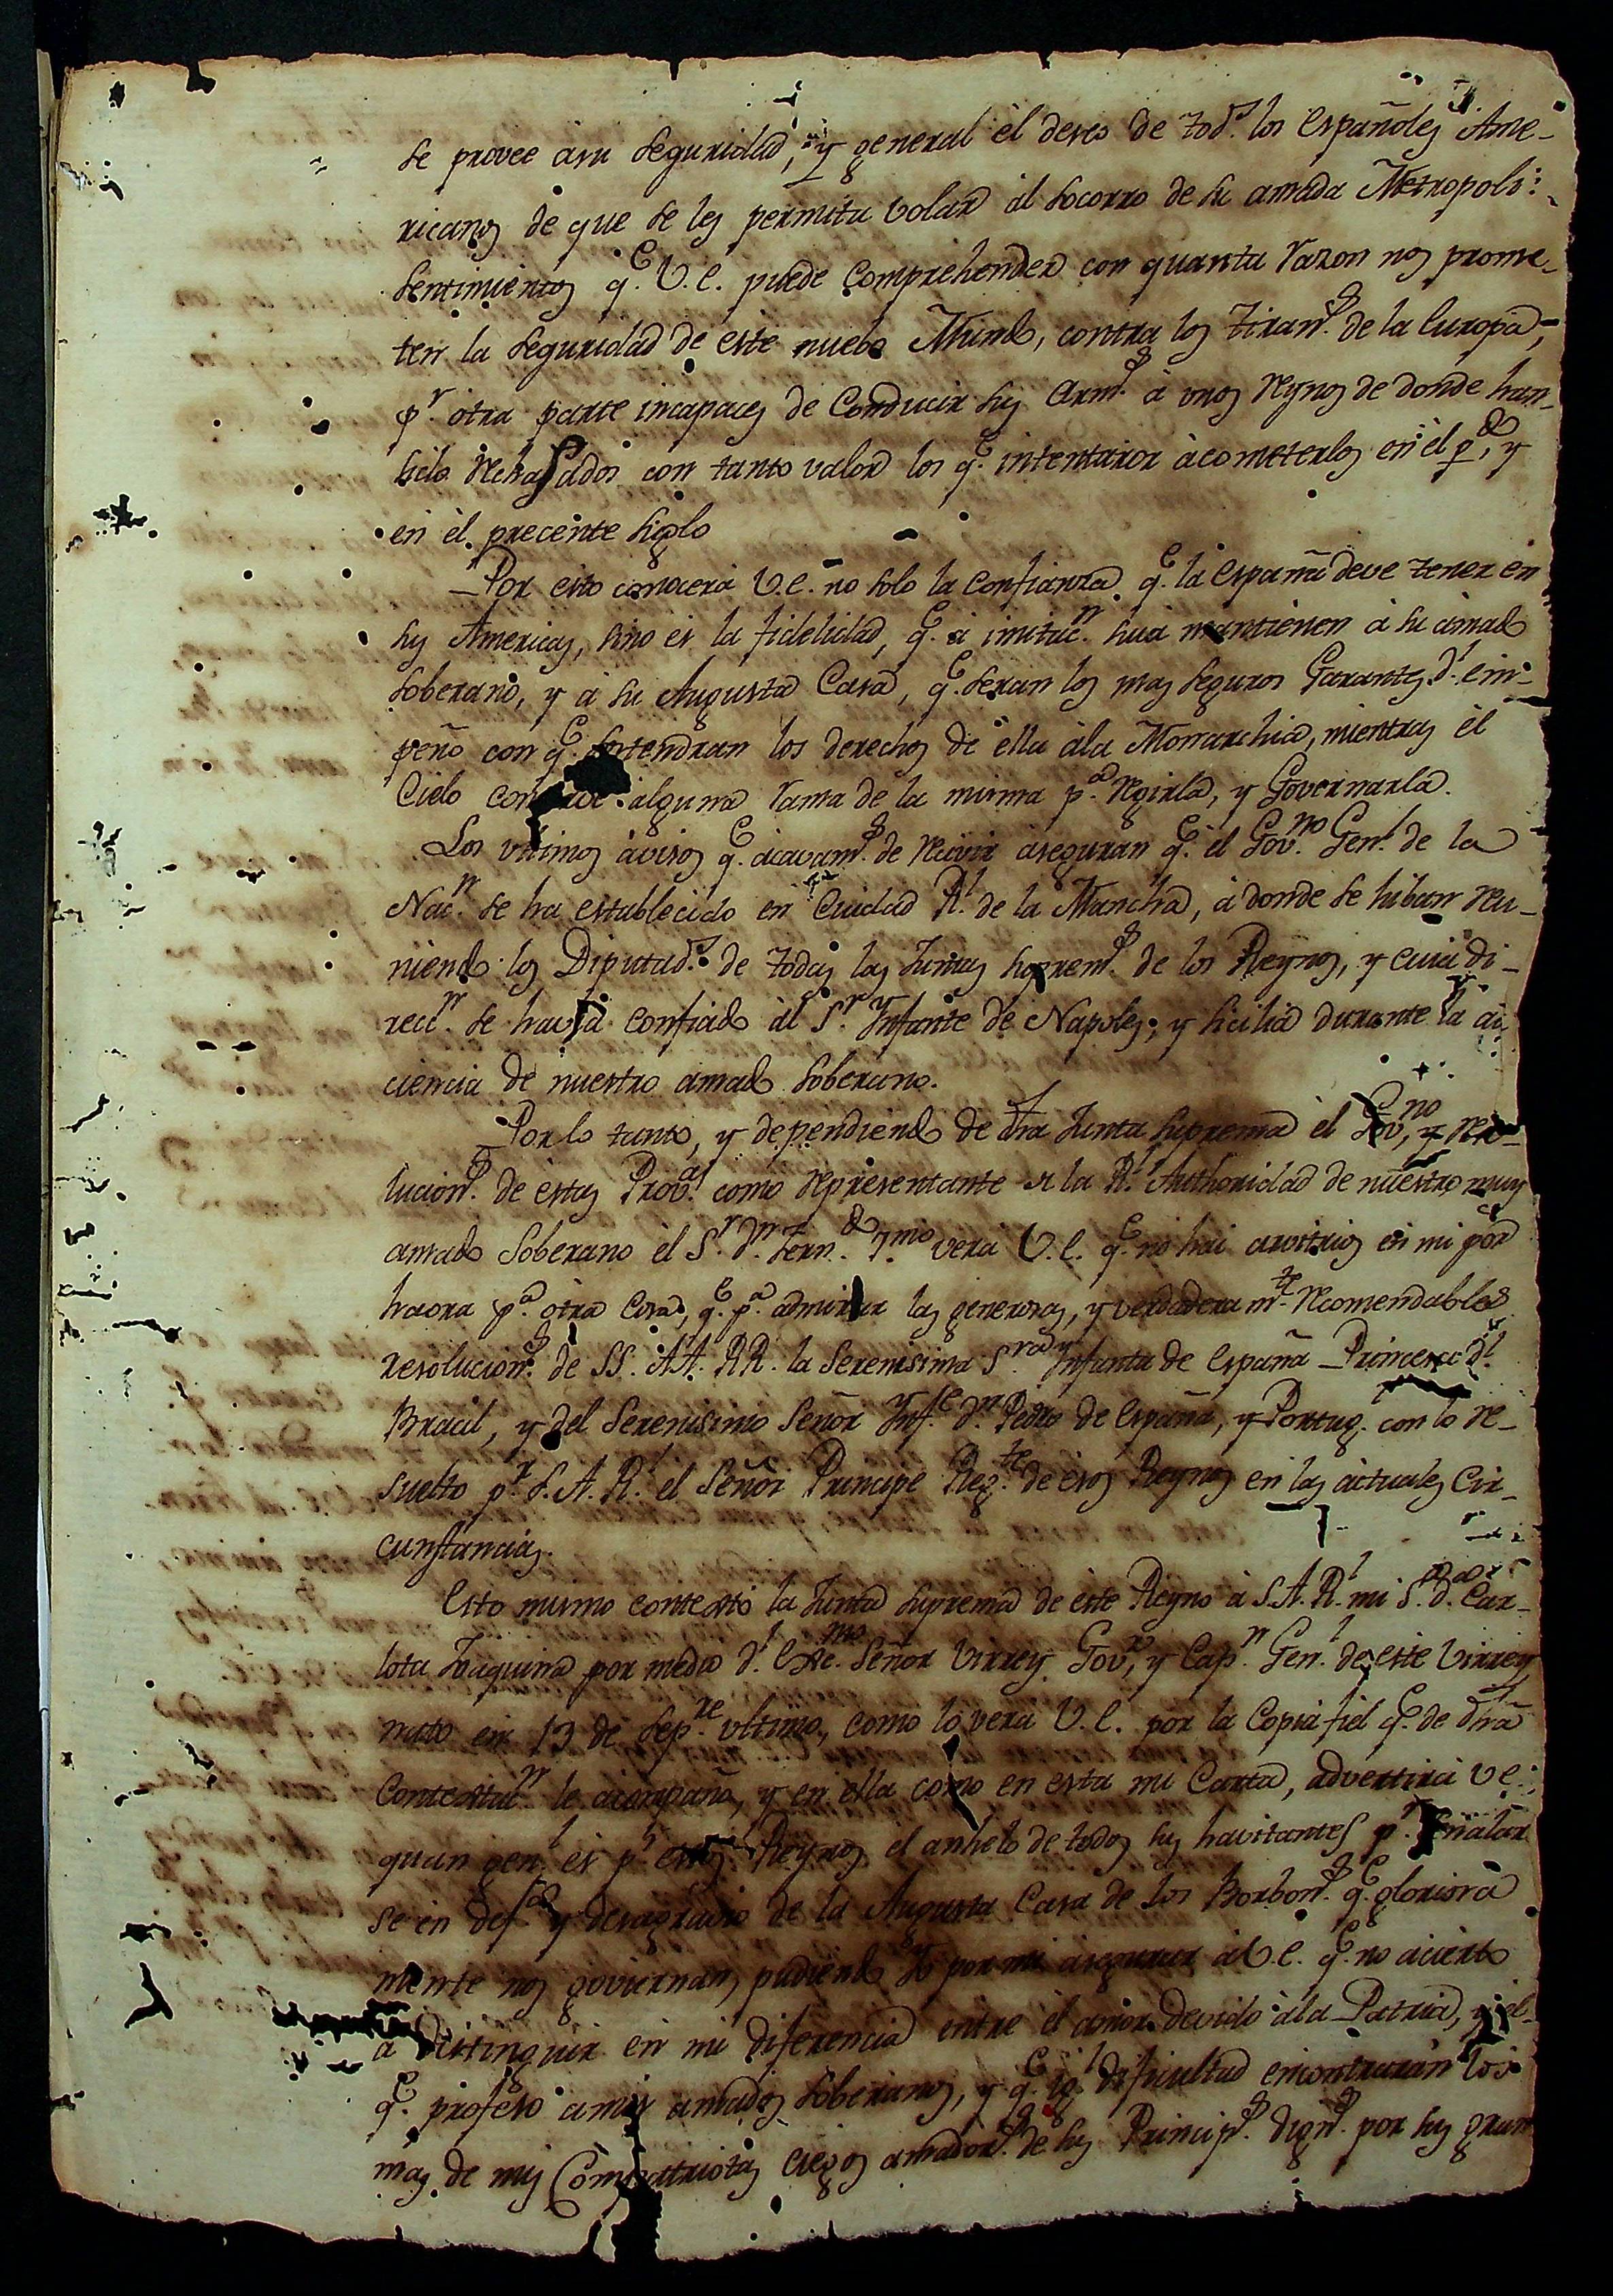 se provee àsu seguridad, y general él deseo de tods. los Españoles Ame-
ricanos de que se les permita volar al socorro de su amada Metropoli:
sentimientos qe. V.E. puede comprehender con quanta razon nos prome-
ten la seguridad de este nuebo Mundo, contra los tirans. de la Europa,
pr. otra parte incapaces de conducir sus arms. à unos Reynos de donde han
sido rechasados con tanto valor los qe. intentaron àcometerlos en él pdo, y
en él precente siglo
Por esto conocerà V.E. no solo la confianza qe. la España deve tener en
sus Americas, sino es la fidelidad, qe. à imitacn. sua mantienen à su amado
soberano, y à su Augusta Casa, qe. seran los mas seguros Garantes dl. em-
peño con qe. sostendran los derechos de élla àla Monarchia, mientras él
Cielo alguna rama de la misma pa. regirla, y Governarla.
Los ultimos àvisos qe. acavams. de recivir aseguran qe. él Govno. Genl. de la
Nacn. se ha establecido en Ciudad Rl. de la Mancha, à donde se hiban reu-
niendo los Diputads. de todas las Juntas suprems. de los Reynos, y cuia di-
reccn. se havia confiado àl Sr. Ynfante de Napoles, y Sicilia durante la au-
ciencia de nuestro amado Soberano.
Por lo tanto, y dependiendo de dha Junta Suprema él Govno, y reso-
lucions. de estas Provas. como representante de la Rl. Authoridad de nuestro muy
amado Soberano él Sr. Dn. Ferndo. 7mo. vera V.E. qe. no hai arvitrios en mi por
haora pa. otra cosa, qe. pa. admirar las generosas, y verdaderamte. recomendables
resolucions. de SS. AA. RR. la Serenisima Sra. Ynfanta de España Princesa dl.
Bracil, y del Serenisimo Señor Ynfte. Dn. Pedro de España, y Portugl. con lo re-
suelto pr. S.A.R. el Señor Principe Regte. de esos Reynos en las actuales Cir-
cunstancias.
Esto mismo contextó la Junta Suprema de este Reyno à S.A.R. mi Sa. Da. Car-
lota Joaquina por medio dl. Exmo. Señor Virrey Govr, y Capn. Genl. de este Virrey
nato en 13 de Sepre. ultimo, como lo vera V.E. por la Copia fiel qe. de dha
Contextacn. le acompaño, y en ella como en esta mi Carta, advertirá VE.
quan genl. es pr. estos Reynos el anhelo de todos sus havitantes pr. señalar
se en defsa. y desagravio de la Augusta Casa de los Borbons. qe. gloriosa
mente nos goviernan, pudiendo Yo por mi asegurar àV.E. qe. no acierto
a distinguir en mi diferencia entre él amor devido àla Patria, y él
qe. profeso amis amados Soberanos, y qe. igl. dificultad encontraràn los
mas de mis Compatriotas ciegos amadors. de sus Princips. digns. por sus gran